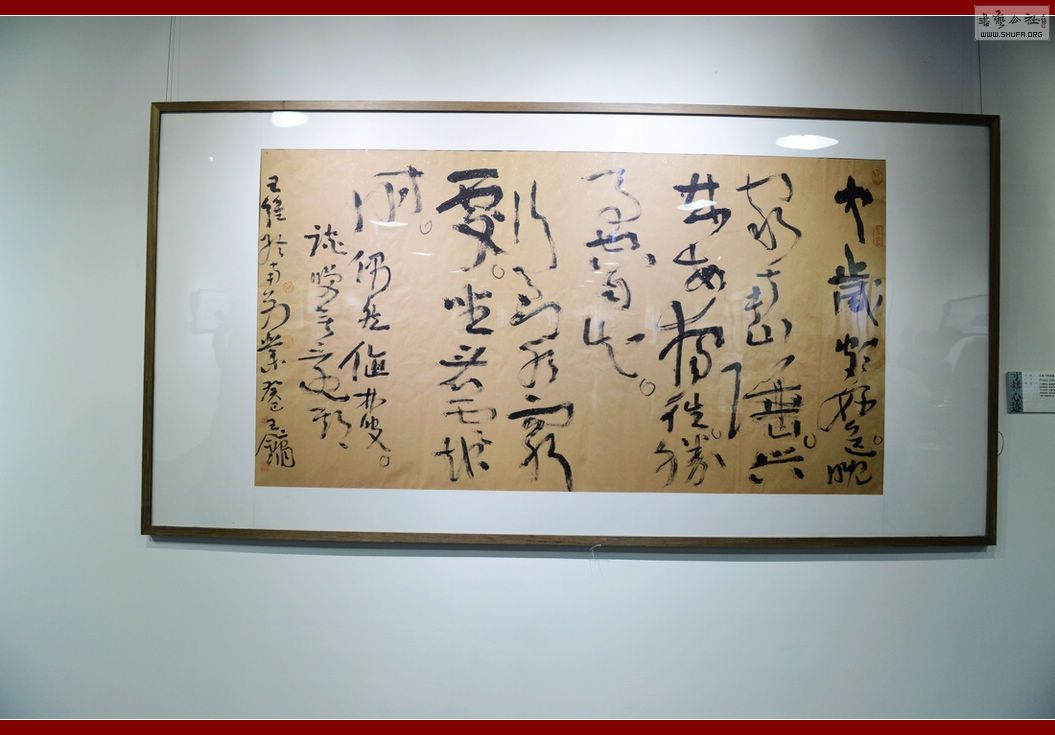 中歲頗好道。晚
家南山陲。興
来每獨往。勝
事空自知。
行到水窮
處。坐看雲起
時。偶然值林叟。
談笑無還期
王維終南别業 癸巳 王鏞
书艺公社
WWW.SHUFA.ORG